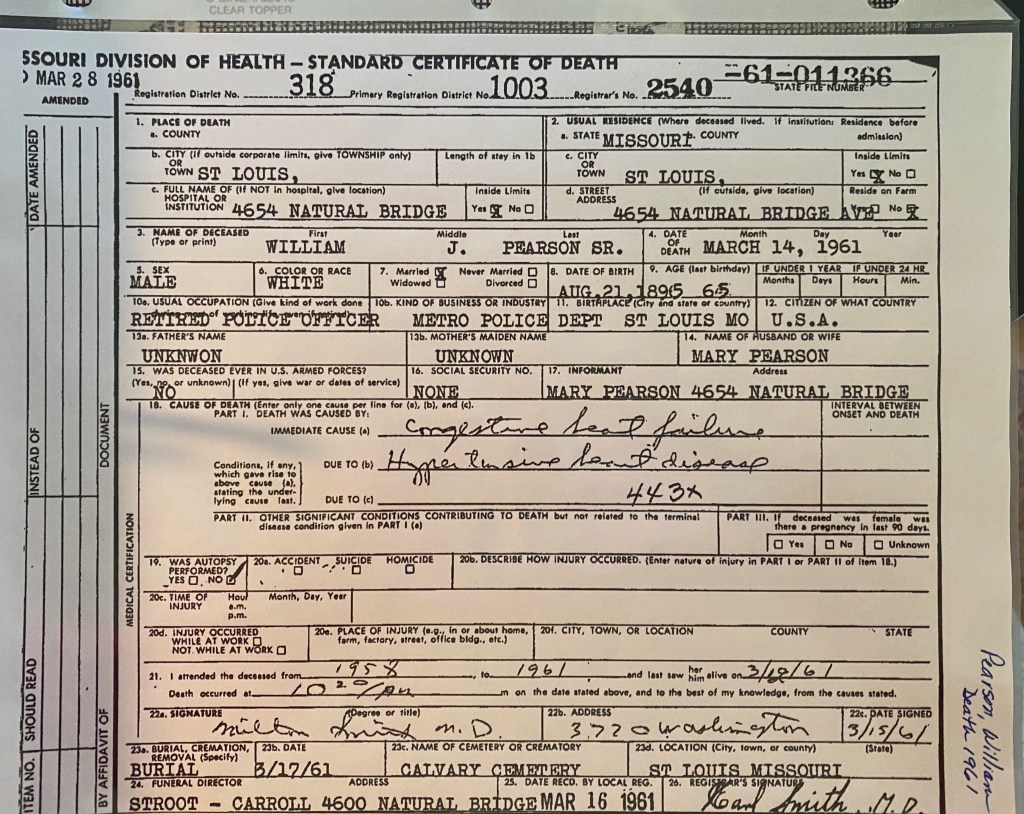 CLEAR TOPPER
SSOURI DIVISION OF HEALTH — STANDARD CERTIFICATE OF DEATH
MAR 28 1961
Registration District No. 318 Primary Registration District No. 1003 Registrar's No. 2540 -61-011366
STATE FILE NUMBER
AMENDED
DATE AMENDED
INSTEAD OF
DOCUMENT
SHOULD READ
ITEM NO.
BY AFFIDAVIT OF
MEDICAL CERTIFICATION
1. PLACE OF DEATH
a. COUNTY
2. USUAL RESIDENCE (Where deceased lived. If institution: Residence before admission)
a. STATE MISSOURI b. COUNTY
b. CITY (If outside corporate limits, give TOWNSHIP only)
OR
TOWN ST LOUIS,
Length of stay in 1b
c. CITY
OR
TOWN ST LOUIS,
Inside Limits
Yes X No
c. FULL NAME OF (If NOT in hospital, give location)
HOSPITAL OR
INSTITUTION 4654 NATURAL BRIDGE
Inside Limits
Yes X No
d. STREET (If outside, give location)
ADDRESS
4654 NATURAL BRIDGE AVE
Reside on Farm
Yes No X
3. NAME OF DECEASED First Middle Last
(Type or print) WILLIAM J. PEARSON SR.
4. DATE Month Day Year
OF
DEATH MARCH 14, 1961
5. SEX
MALE
6. COLOR OR RACE
WHITE
7. Married X Never Married
Widowed Divorced
8. DATE OF BIRTH
AUG.21,1895
9. AGE (last birthday)
65
IF UNDER 1 YEAR IF UNDER 24 HR
Months Days Hours Min.
10a. USUAL OCCUPATION (Give kind of work done
during most of working life, even if retired)
RETIRED POLICE OFFICER
10b. KIND OF BUSINESS OR INDUSTRY
METRO POLICE DEPT
11. BIRTHPLACE (City and state or country)
ST LOUIS MO
12. CITIZEN OF WHAT COUNTRY
U.S.A.
13a. FATHER'S NAME
UNKNWON
13b. MOTHER'S MAIDEN NAME
UNKNOWN
14. NAME OF HUSBAND OR WIFE
MARY PEARSON
15. WAS DECEASED EVER IN U.S. ARMED FORCES?
(Yes, no, or unknown) (If yes, give war or dates of service)
NO
16. SOCIAL SECURITY NO.
NONE
17. INFORMANT Address
MARY PEARSON 4654 NATURAL BRIDGE
18. CAUSE OF DEATH (Enter only one cause per line for (a), (b), and (c).
PART I. DEATH WAS CAUSED BY:
INTERVAL BETWEEN
ONSET AND DEATH
IMMEDIATE CAUSE (a) Congestive heart failure
Conditions, if any,
which gave rise to
above cause (a),
stating the under-
lying cause last.
DUE TO (b) Hypertensive heart disease
DUE TO (c) 443X
PART II. OTHER SIGNIFICANT CONDITIONS CONTRIBUTING TO DEATH but not related to the terminal
disease condition given in PART I (a)
PART III. If deceased was female was
there a pregnancy in last 90 days.
Yes No Unknown
19. WAS AUTOPSY
PERFORMED?
YES NO
20a. ACCIDENT SUICIDE HOMICIDE
20b. DESCRIBE HOW INJURY OCCURRED. (Enter nature of injury in PART I or PART II of item 18.)
20c. TIME OF Hour Month, Day, Year
INJURY a.m.
p.m.
20d. INJURY OCCURRED
WHILE AT WORK
NOT WHILE AT WORK
20e. PLACE OF INJURY (e.g., in or about home,
farm, factory, street, office bldg., etc.)
20f. CITY, TOWN, OR LOCATION COUNTY STATE
21. I attended the deceased from 1958 to 1961 and last saw her him alive on
Death occurred at 10 20 m on the date stated above, and to the best of my knowledge, from the causes stated.
22a. SIGNATURE (Degree or title)
Milton M.D.
22b. ADDRESS
3720 Washington
22c. DATE SIGNED
3/15/61
23a. BURIAL, CREMATION,
REMOVAL (Specify)
BURIAL
23b. DATE
3/17/61
23c. NAME OF CEMETERY OR CREMATORY
CALVARY CEMETERY
23d. LOCATION (City, town, or county) (State)
ST LOUIS MISSOURI
24. FUNERAL DIRECTOR ADDRESS
STROOT - CARROLL 4600 NATURAL BRIDGE
25. DATE RECD. BY LOCAL REG.
MAR 16 1961
26. REGISTRAR'S SIGNATURE
Earl Smith, M.D.
Pearson, William
Death 1961